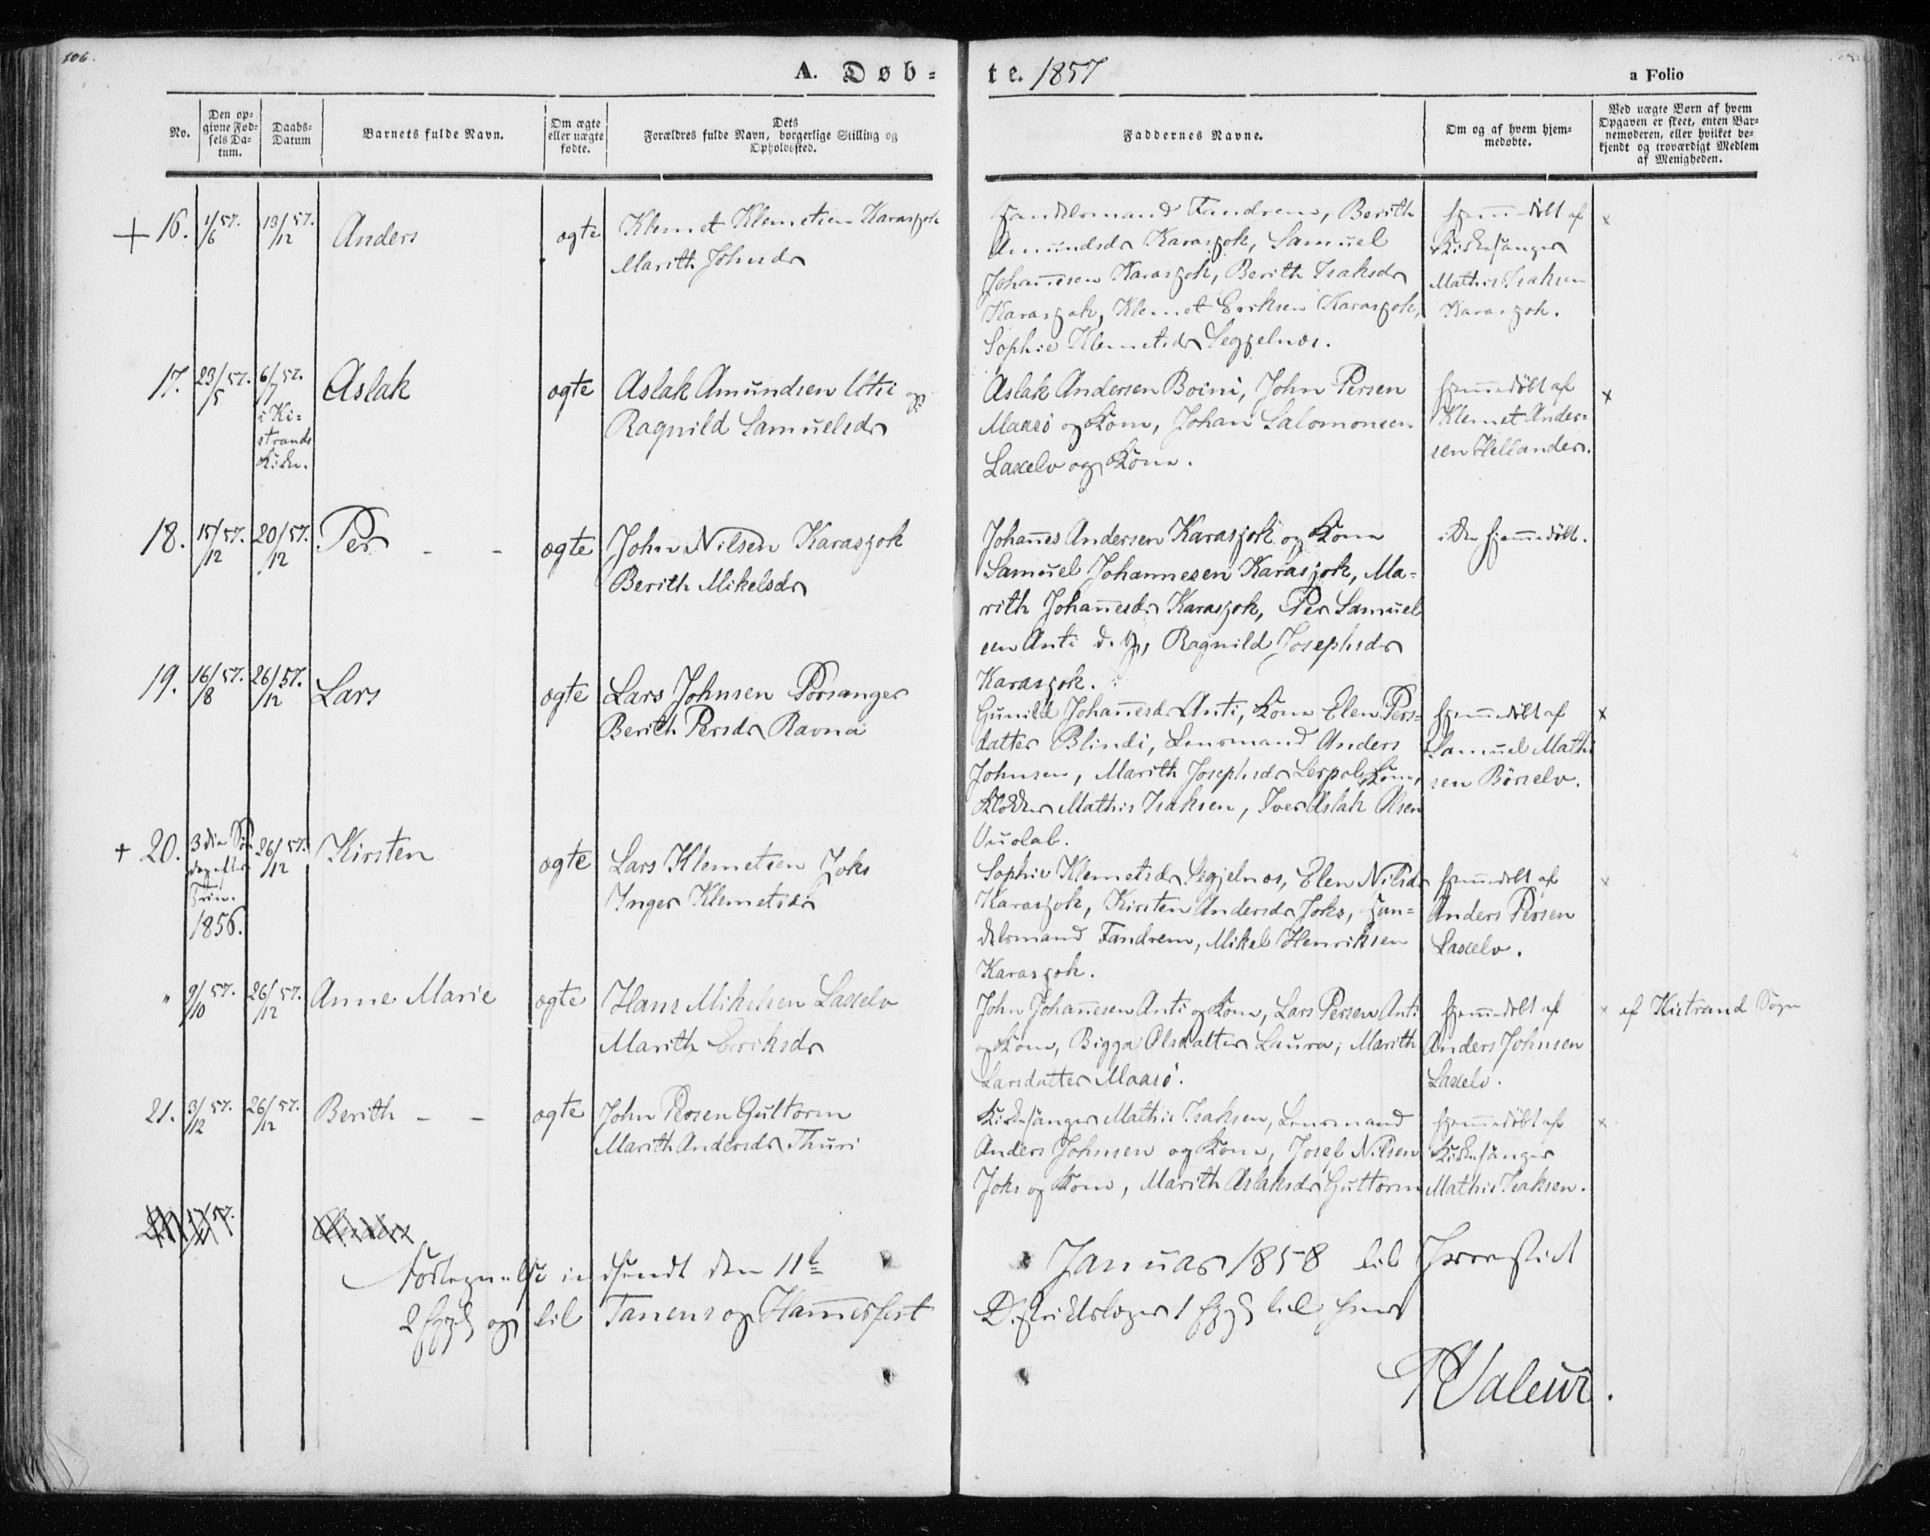 106.
A. Døb-
te. 1857
a Folio
No.
Den op-
givne Fød-
sels Da-
tum.
Daabs-
Datum
Barnets fulde Navn.
Om ægte
eller uægte
fødte.
Dets
Forældres fulde Navn, borgerlige Stilling og
Opholdssted.
Faddernes Navne.
Om og af hvem hjem-
medøbte.
Ved uægte Børn af hvem
Opgaven er skeet, enten Bar-
nemoderen, eller hvilket be-
kjendt og troværdigt Medlem
af Menigheden.
+ 16. 1/6 57. 13/12 57. Anders ægte
Klemet Klemetsen Karasjok
Marith Johnsdr
Handelsmand Fandrem, Berith
Amundsdr Karasjok, Samuel
Johannesen Karasjok, Berith Isaksdr
Karasjok, Klemet Eriksen Karasjok,
Sophie Klemetsdr Segjelnæs.
hjemmedøbt af
Kirkesanger
Mathis Isaksen
Karasjok.
x
17. 23/5 57. 6/7 57.
i Ki-
strands
Kirke.
Aslak ægte
Aslak Amundsen Utsi og
Ragnild Samuelsdr
Aslak Andersen Boini, John Persen
Maasø og Kone, Johan Salomonsen
Laxelv og Kone.
hjemmedøbt af
Klemet Ander-
sen Hellander.
x
18. 15/12 57. 20/12 57. Per - - ægte
John Nilsen Karasjok
Berith Mikelsdr
Johannes Andersen Karasjok og Kone
Samuel Johannesen Karasjok, Ma-
rith Johannesdr Karasjok, Per Samuel
sen Anti d. y., Ragnild Josephsdr
Karasjok.
ikke hjemmedøbt.
19. 16/8 57. 26/12 57. Lars ægte
Lars Johnsen Porsanger
Berith Persdr Ravna
Gunild Johannesdr Anti, Kone Elen Pers-
datter Blindi, Lensmand Anders
Johnsen, Marith Josephsdr Kone,
Klokker Mathis Isaksen, Iver Aslak Olsen
Vuolab.
hjemmedøbt af
Samuel Mathi
sen Børselv.
x
+ 20. 3die Søn
dag efter
Trin.
1856.
26/12 57. Kirsten ægte
Lars Klemetsen Joks
Inger Klemetsdr
Sophie Klemetsdr Segjelnæs, Elen Nilsdr
Karasjok, Kirsten Andersdr Joks, Han-
delsmand Fandrem, Mikel Henriksen
Karasjok.
hjemmedøbt af
Anders Persen
Laxelv.
x
" 9/10 57. 26/12 57. Anne Marie ægte
Hans Mikelsen Laxelv
Marith Eriksdr
John Johannesen Anti og Kone, Lars Persen Anti
og Kone, Bigga Olsdatter Laura, Marith
Larsdatter Maasø.
hjemmedøbt af
Anders Johnsen
Laxelv.
x af Kistrand Sogn
21. 3/12 57. 26/12 57. Berith - - ægte
John Persen Guttorm
Marith Andersdr Thuri
Kirkesanger Mathis Isaksen, Lensmand
Anders Johnsen og Kone, Josef Nilsen
Joks og Kone, Marith Aslaksdr Guttorm
hjemmedøbt af
Kirkesanger
Mathis Isaksen.
x
Fortegnelse indsendt den 11te Januar 1858 til
2 og til Tanens og Hammerfest Distriktslæger 1 til
Valeur.